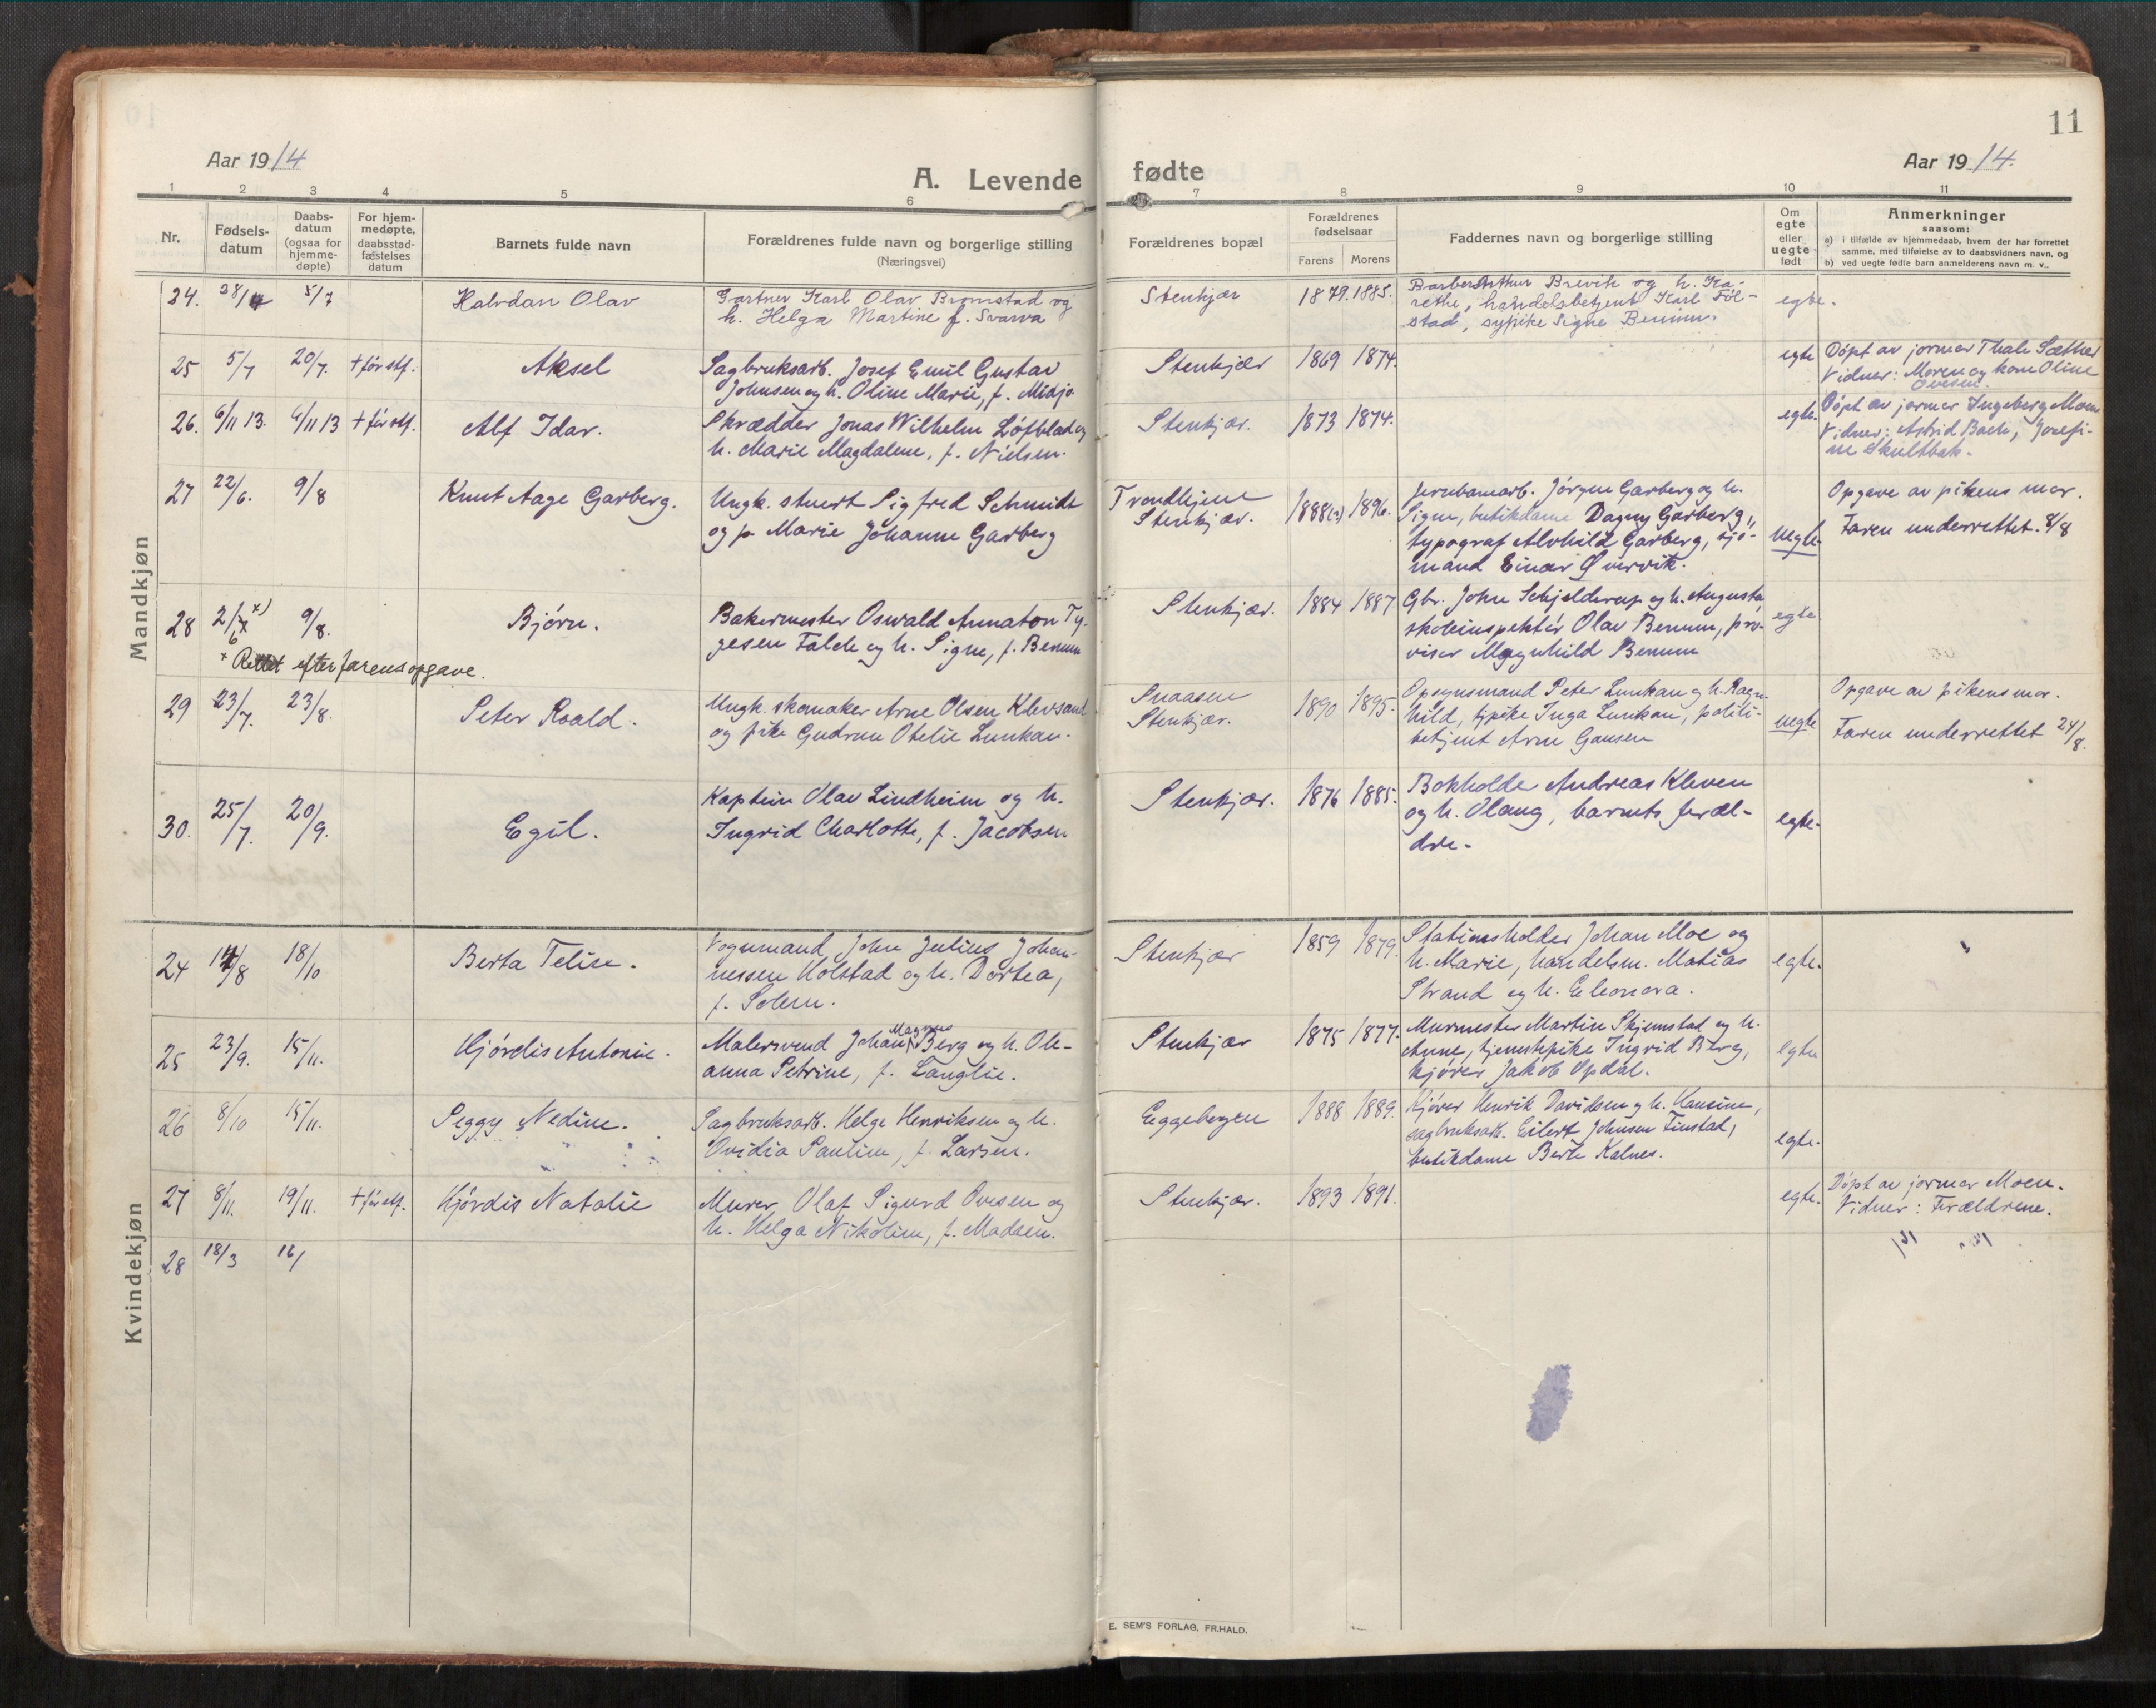 11
Aar 1914
A. Levende fødte
Aar 1914.
1 2 3 4 5 6 7 8 9 10 11
Nr.
Fødsels-
datum
Daabs-
datum
(ogsaa for
hjemme-
døpte)
For hjem-
medøpte,
daabsstad-
fæstelses
datum
Barnets fulde navn
Forældrenes fulde navn og borgerlige stilling
(Næringsvei)
Forældrenes bopæl
Forældrenes
fødselsaar
Farens Morens
Faddernes navn og borgerlige stilling
Om
egte
eller
uegte
født
Anmerkninger
saasom:
a) i tilfælde av hjemmedaab, hvem der har forrettet
samme, med tilføielse av to daabsvidners navn, og
b) ved uegte fødte barn anmelderens navn m. v..
Mandkjøn
24. 5/7
Halvdan Olav
Gartner Karl Olav Bromstad og
h. Helga Martine f. Svarva
Stenkjær
1879. 1885.
Barber Arthur Brevik og h. Ka-
rethe, handelsbetjent Karl Føl-
stad, sypike Signe Benum.
egte.
25 5/7 20/7. + før stf.
Aksel
Sagbruksarb. Josef Emil Gustav
Johnsen og h. Oline Marie, f. Midjo
Stenkjær
1869 1874.
egte
Døpt av jormor Thale Sæther
Vidner: Moren og kone Oline
Ovesen.
26. 6/11 13. 6/11 13 + før stf.
Alf Idar.
Skrædder Jonas Wilhelm Löfblad og
h. Marie Magdalene, f. Nielsen.
Stenkjær.
1873 1874.
egte.
Døpt av jormor Ingeberg Moen
Vidner: Astrid Bach, Josefi-
ne Skultbak.
27 22/6. 9/8
Knut Aage Garberg.
Ungk. stuert Sigfred Schmidt
og p. Marie Johanne Garberg
Trondhjem
Stenkjær.
1888(?) 1896.
Jernbanarb. Jörgen Garberg og h.
Signe, butikdame Dagny Garberg,
typograf Alvhild Garberg, sjø-
mand Einar Øvervik.
uegte.
Opgave av pikens mor.
Faren underrettet. 8/8
28 9/8.
Bjørn.
Bakermester Oswald Annaton Ty-
gesen Falde og h. Signe, f. Benum
Stenkjær.
1884 1887
Gbr. John Schjelderup og h. Augusta
skoleinspektør Olav Benum, pro-
visor Magnhild Benum
egte.
x Rettet efter farens opgave.
29 23/7. 23/8.
Peter Roald.
Ungk. skomaker Arne Olsen Klevsand
og pike Gudrun Otelie Lunkan.
Snaasen
Stenkjær.
1890 1895.
Opsynsmand Peter Lunkan og h. Ragn-
hild, sypike Inga Lunkan, politi-
betjent Arne Gausen
uegte
Opgave av pikens mor.
Faren underrettet 24/8.
30. 25/7. 20/9.
Egil.
Kaptein Olav Lindheim og h.
Ingrid Charlotte, f. Jacobsen
Stenkjær.
1876 1885.
Bokholder Andreas Kleven
og h. Olaug, barnets foræl-
dre.
egte.
Kvindekjøn
24 18/10
Berta Telise.
Vognmand John Julius Johan-
nessen Holstad og h. Dortea,
f. Solem.
Stenkjær
1859 1879.
Stationsholder Johan Moe og
h. Marie, handelsm. Matias
Strand og h. Eleonora.
egte.
25 23/9. 15/11.
Hjørdis Antonie.
Malersvend Johan Magnus Berg og h. Ole-
anna Petrine, f. Langlie.
Stenkjær
1875 1877.
Murmester Martin Skjemstad og h.
Anne, tjenestepike Ingrid Berg,
kjører Jakob Opdal.
egte
26 8/10 15/11.
Peggy Nedine.
Sagbruksarb. Helge Henriksen og h.
Ovidia Pauline, f. Larsen.
Eggebogen
1888 1889.
Kjører Henrik Davidsen og h. Hansine,
sagbruksarb. Eilert Johnsen Finstad,
butikdame Berte Kalnes.
egte.
27 8/11. 19/11. + før stf.
Hjørdis Natalie
Murer Olaf Sigurd Ovesen og
h. Helga Nikoline, f. Madsen.
Stenkjær.
1893 1891.
egte.
Døpt av jormor Moen.
Vidner: Forældrene.
28 18/3 16/
E. SEM'S FORLAG, FR.HALD.